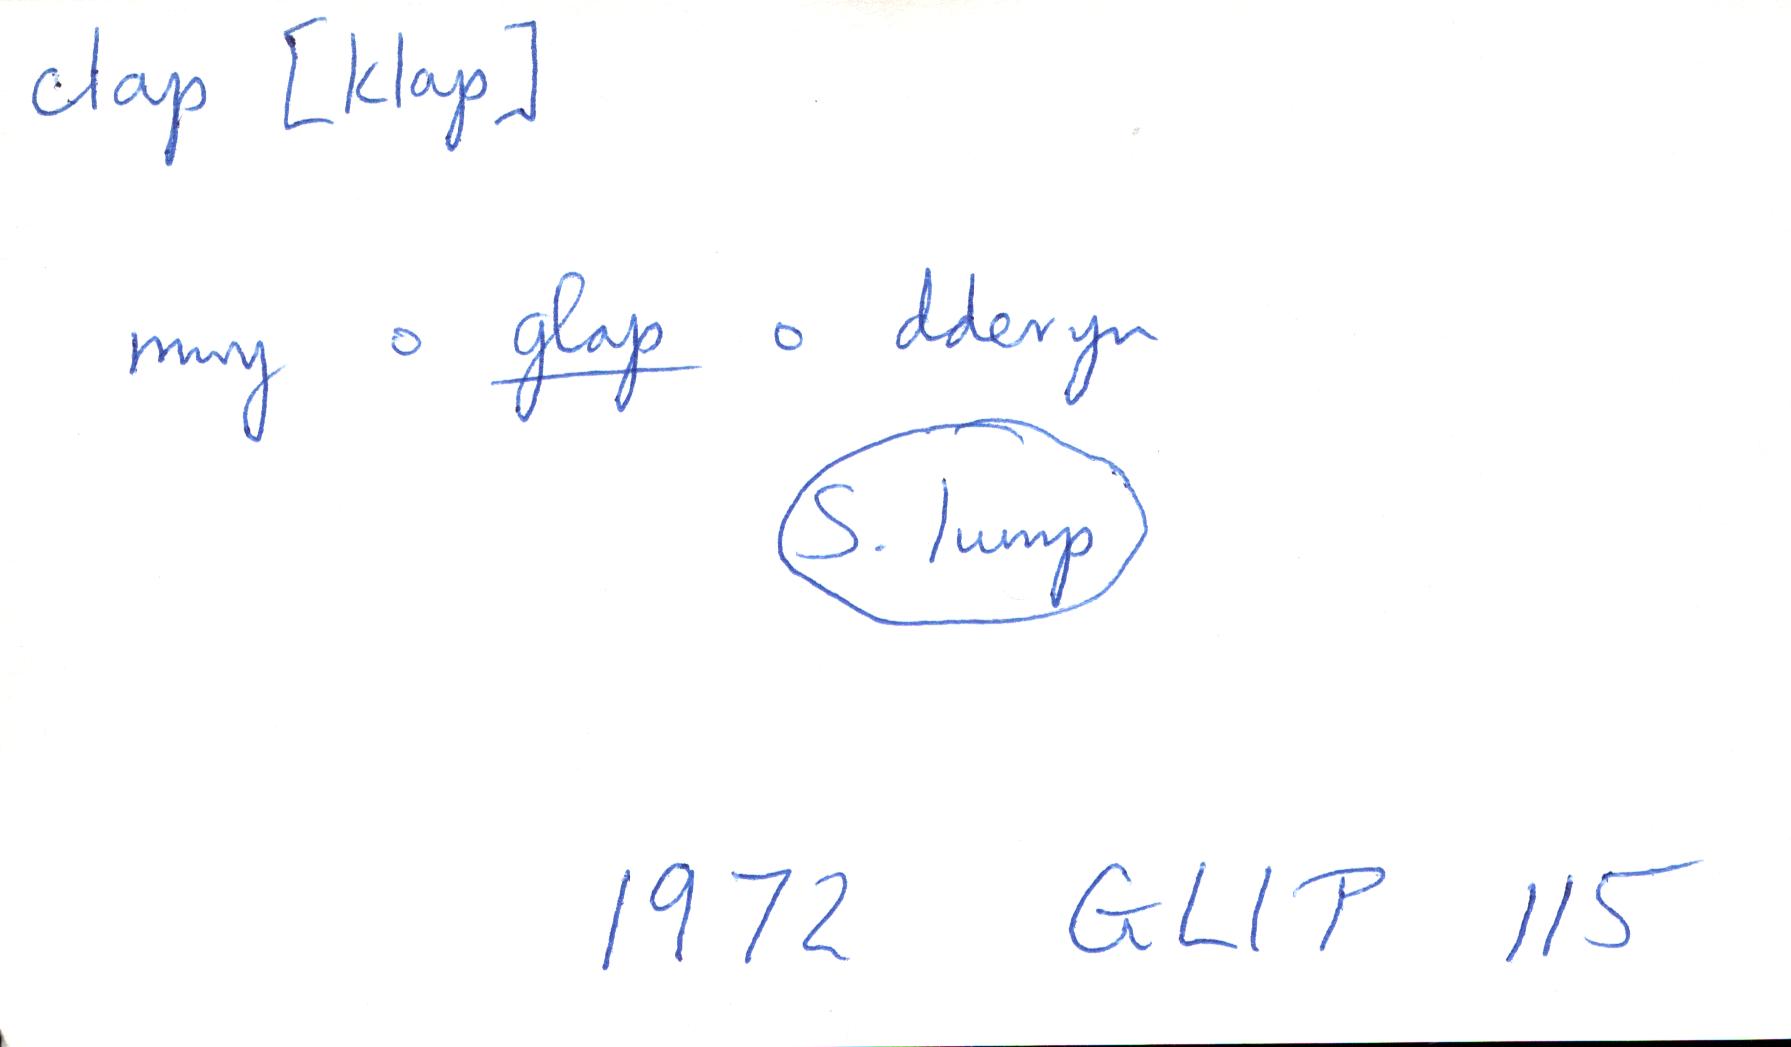 clap [klap]
mwy o glap o dderyn
S. lump
1972 GLIP 115